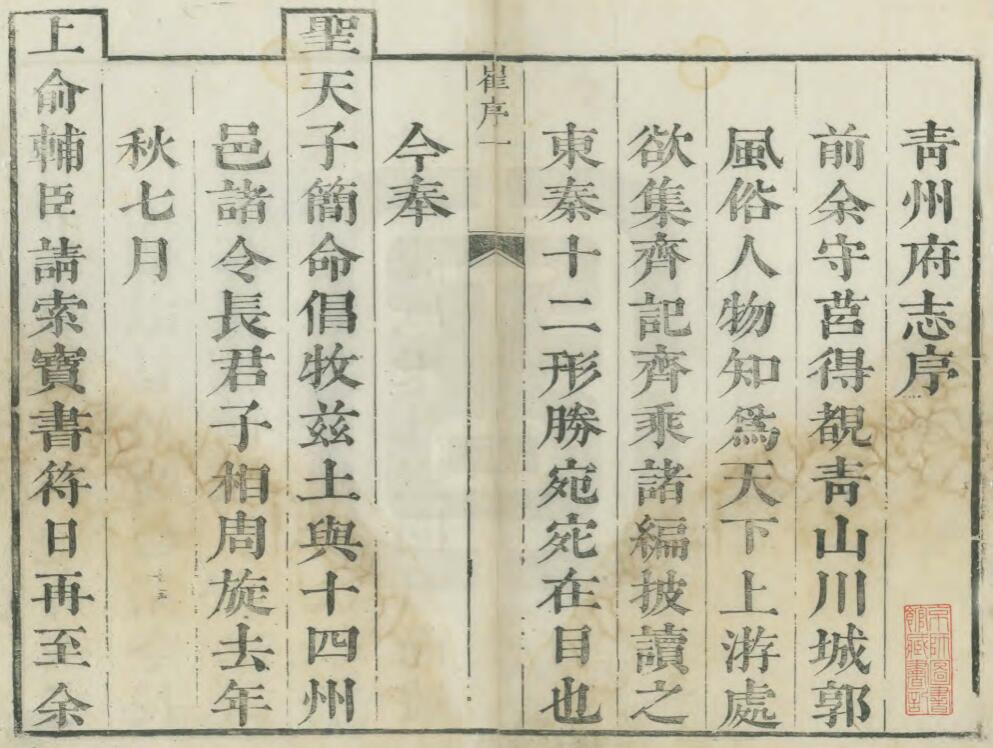 青州府志序
前余守莒得覩青山川城郭
風俗人物知爲天下上游處
欲集齊記齊乘諸編披讀之
東秦十二形勝宛宛在目也
崔序一
今奉
聖天子簡命倡牧兹土與十四州
邑諸令長君子相周旋去年
秋七月
上俞輔臣請索寶書符日再至余
京師圖書館藏書記